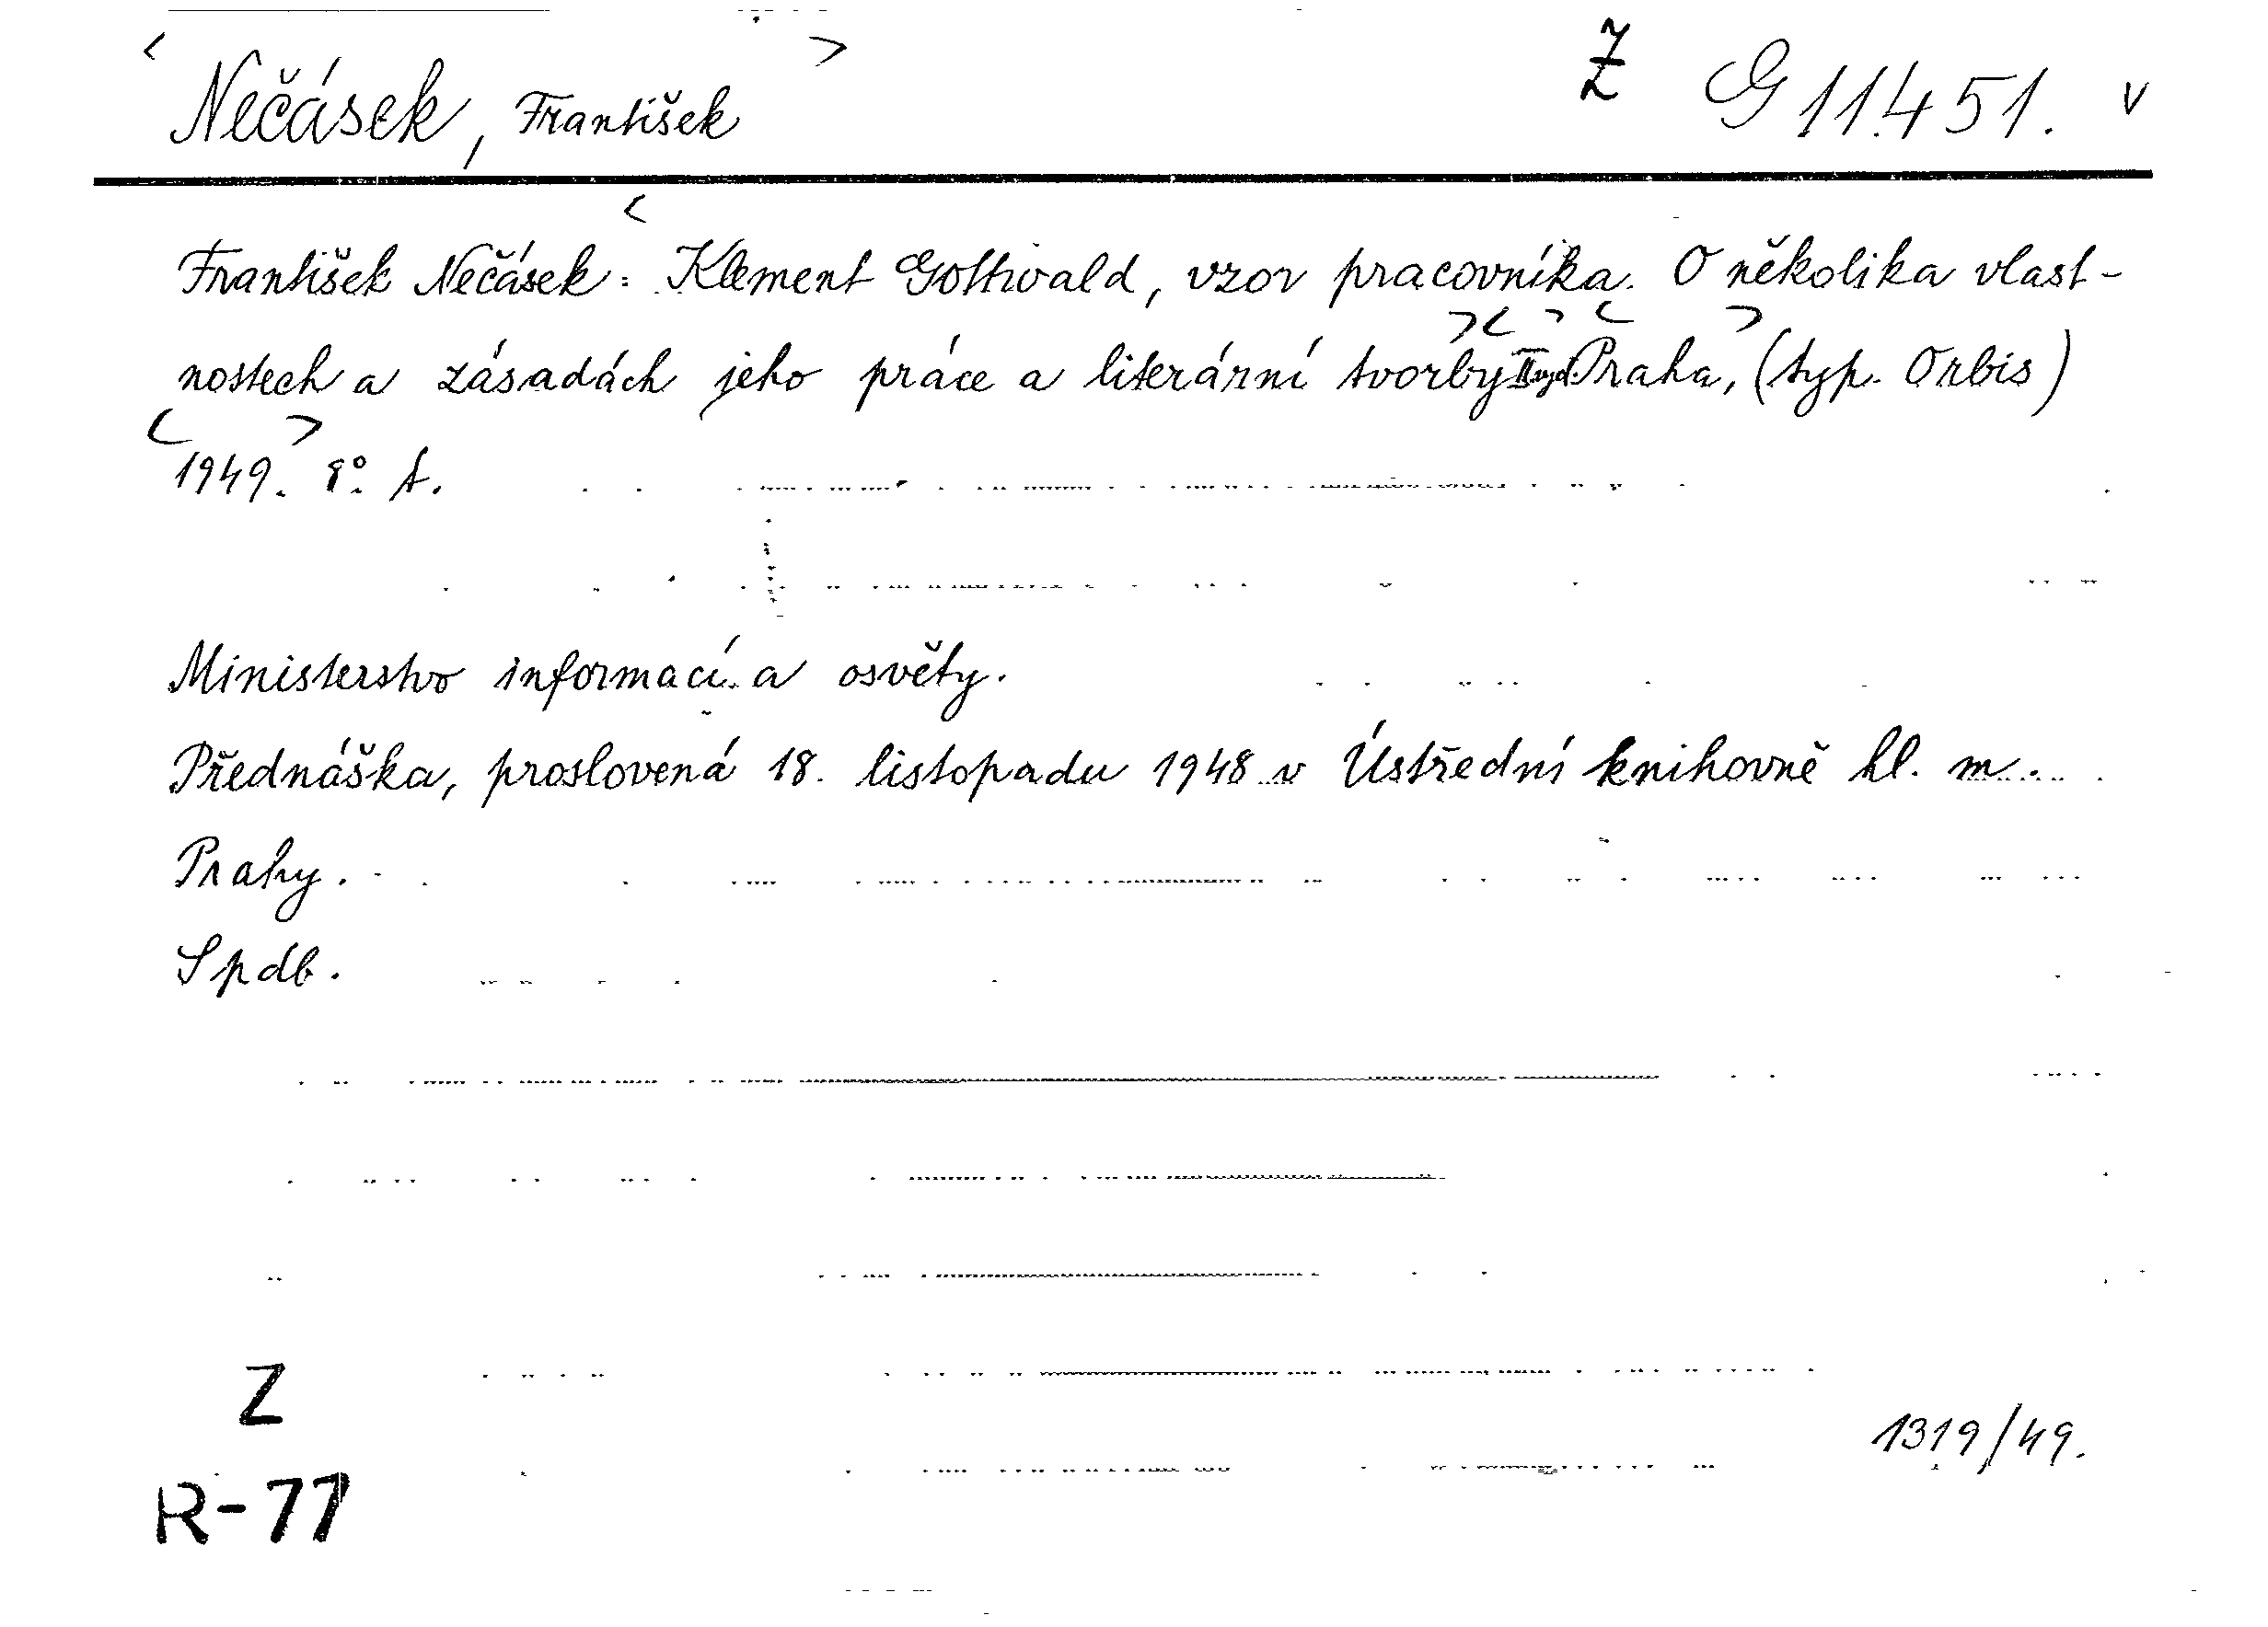 < Nečásek, František > Ž G 11.451. v
< František Nečásek: Klement Gottwald, vzor pracovníka. O několika vlast-
nostech a zásadách jeho práce a literární tvorby II.vyd. Praha, (typ. Orbis)
<1949.> 8°. A.
Ministerstvo informací a osvěty.
Přednáška, proslovená 18. listopadu 1948 v Ústřední knihovně hl. m.
Prahy.
Spdb.
Z
1319/49.
R-77